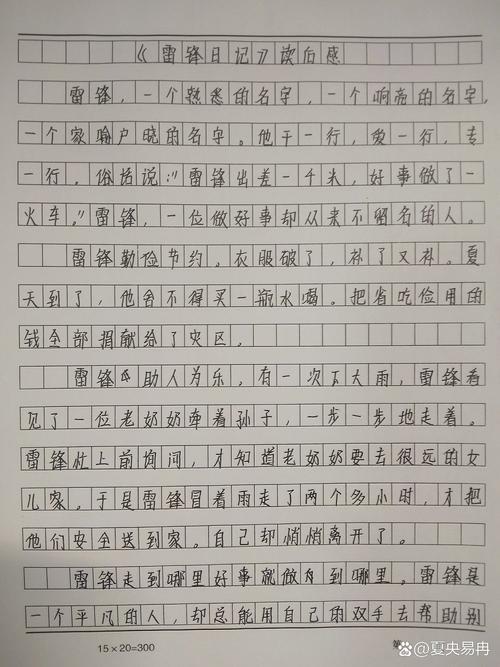 《雷锋日记》读后感
雷锋，一个熟悉的名字，一个响亮的名字，
一个家喻户晓的名字。他干一行，爱一行，专
一行。俗话说："雷锋出差一千米，好事做了一
火车。"雷锋，一位做好事却从来不留名的人。
雷锋勤俭节约。衣服破了，补了又补。夏
天到了，他舍不得买一瓶水喝。把省吃俭用的
钱全部捐献给了灾区。
雷锋助人为乐，有一次下大雨，雷锋看
见了一位老奶奶牵着孙子，一步一步地走着。
雷锋忙上前询问，才知道老奶奶要去很远的女
儿家。于是雷锋冒着雨走了两个多小时，才把
他们安全送到家。自己却悄悄离开了。
雷锋走到哪里好事就做到哪里。雷锋是
一个平凡的人，却总能用自己的双手去帮助别
15×20=300
第
百度 夏央易冉